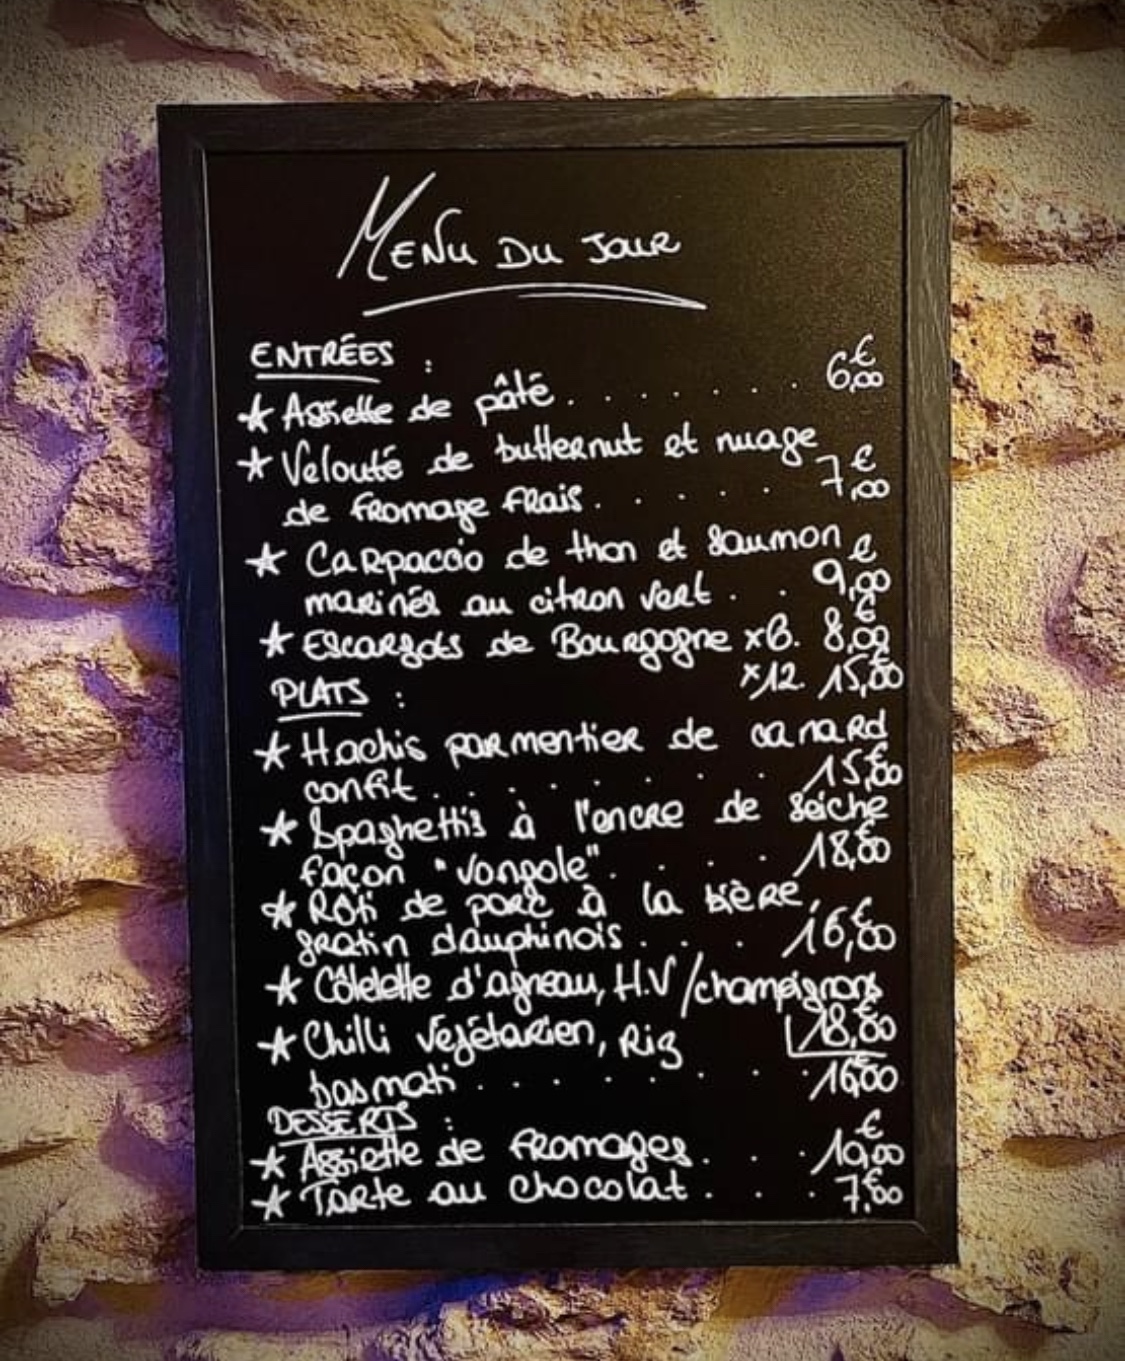 MENU DU JOUR
ENTRÉES :
★ Assiette de pâté . . . . . . . 6,00€
★ Velouté de butternut et nuage
de fromage frais . . . . . 7,00€
★ Carpaccio de thon et saumon
marinés au citron vert . . 9,00€
★ Escargots de Bourgogne x6. 8,00€
x12. 15,00€
PLATS :
★ Hachis parmentier de canard
confit . . . . . . . . 15,00€
★ Spaghettis à l'encre de seiche
façon "vongole" . . . . 18,00€
★ Rôti de porc à la bière,
gratin dauphinois . . . 16,00€
★ Côtelette d'agneau, H.V/champignons
18,00€
★ Chilli végétarien, Riz
basmati . . . . . . . . 16,00€
DESSERTS :
★ Assiette de fromages . . . 10,00€
★ Tarte au chocolat . . . 7,00€